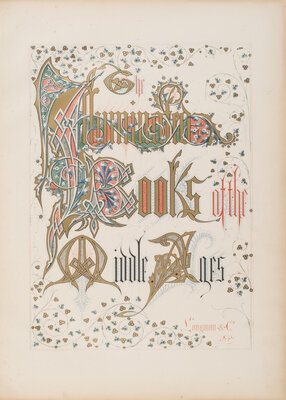 The
Illuminated
Books of the
Middle Ages
Longman & Co.